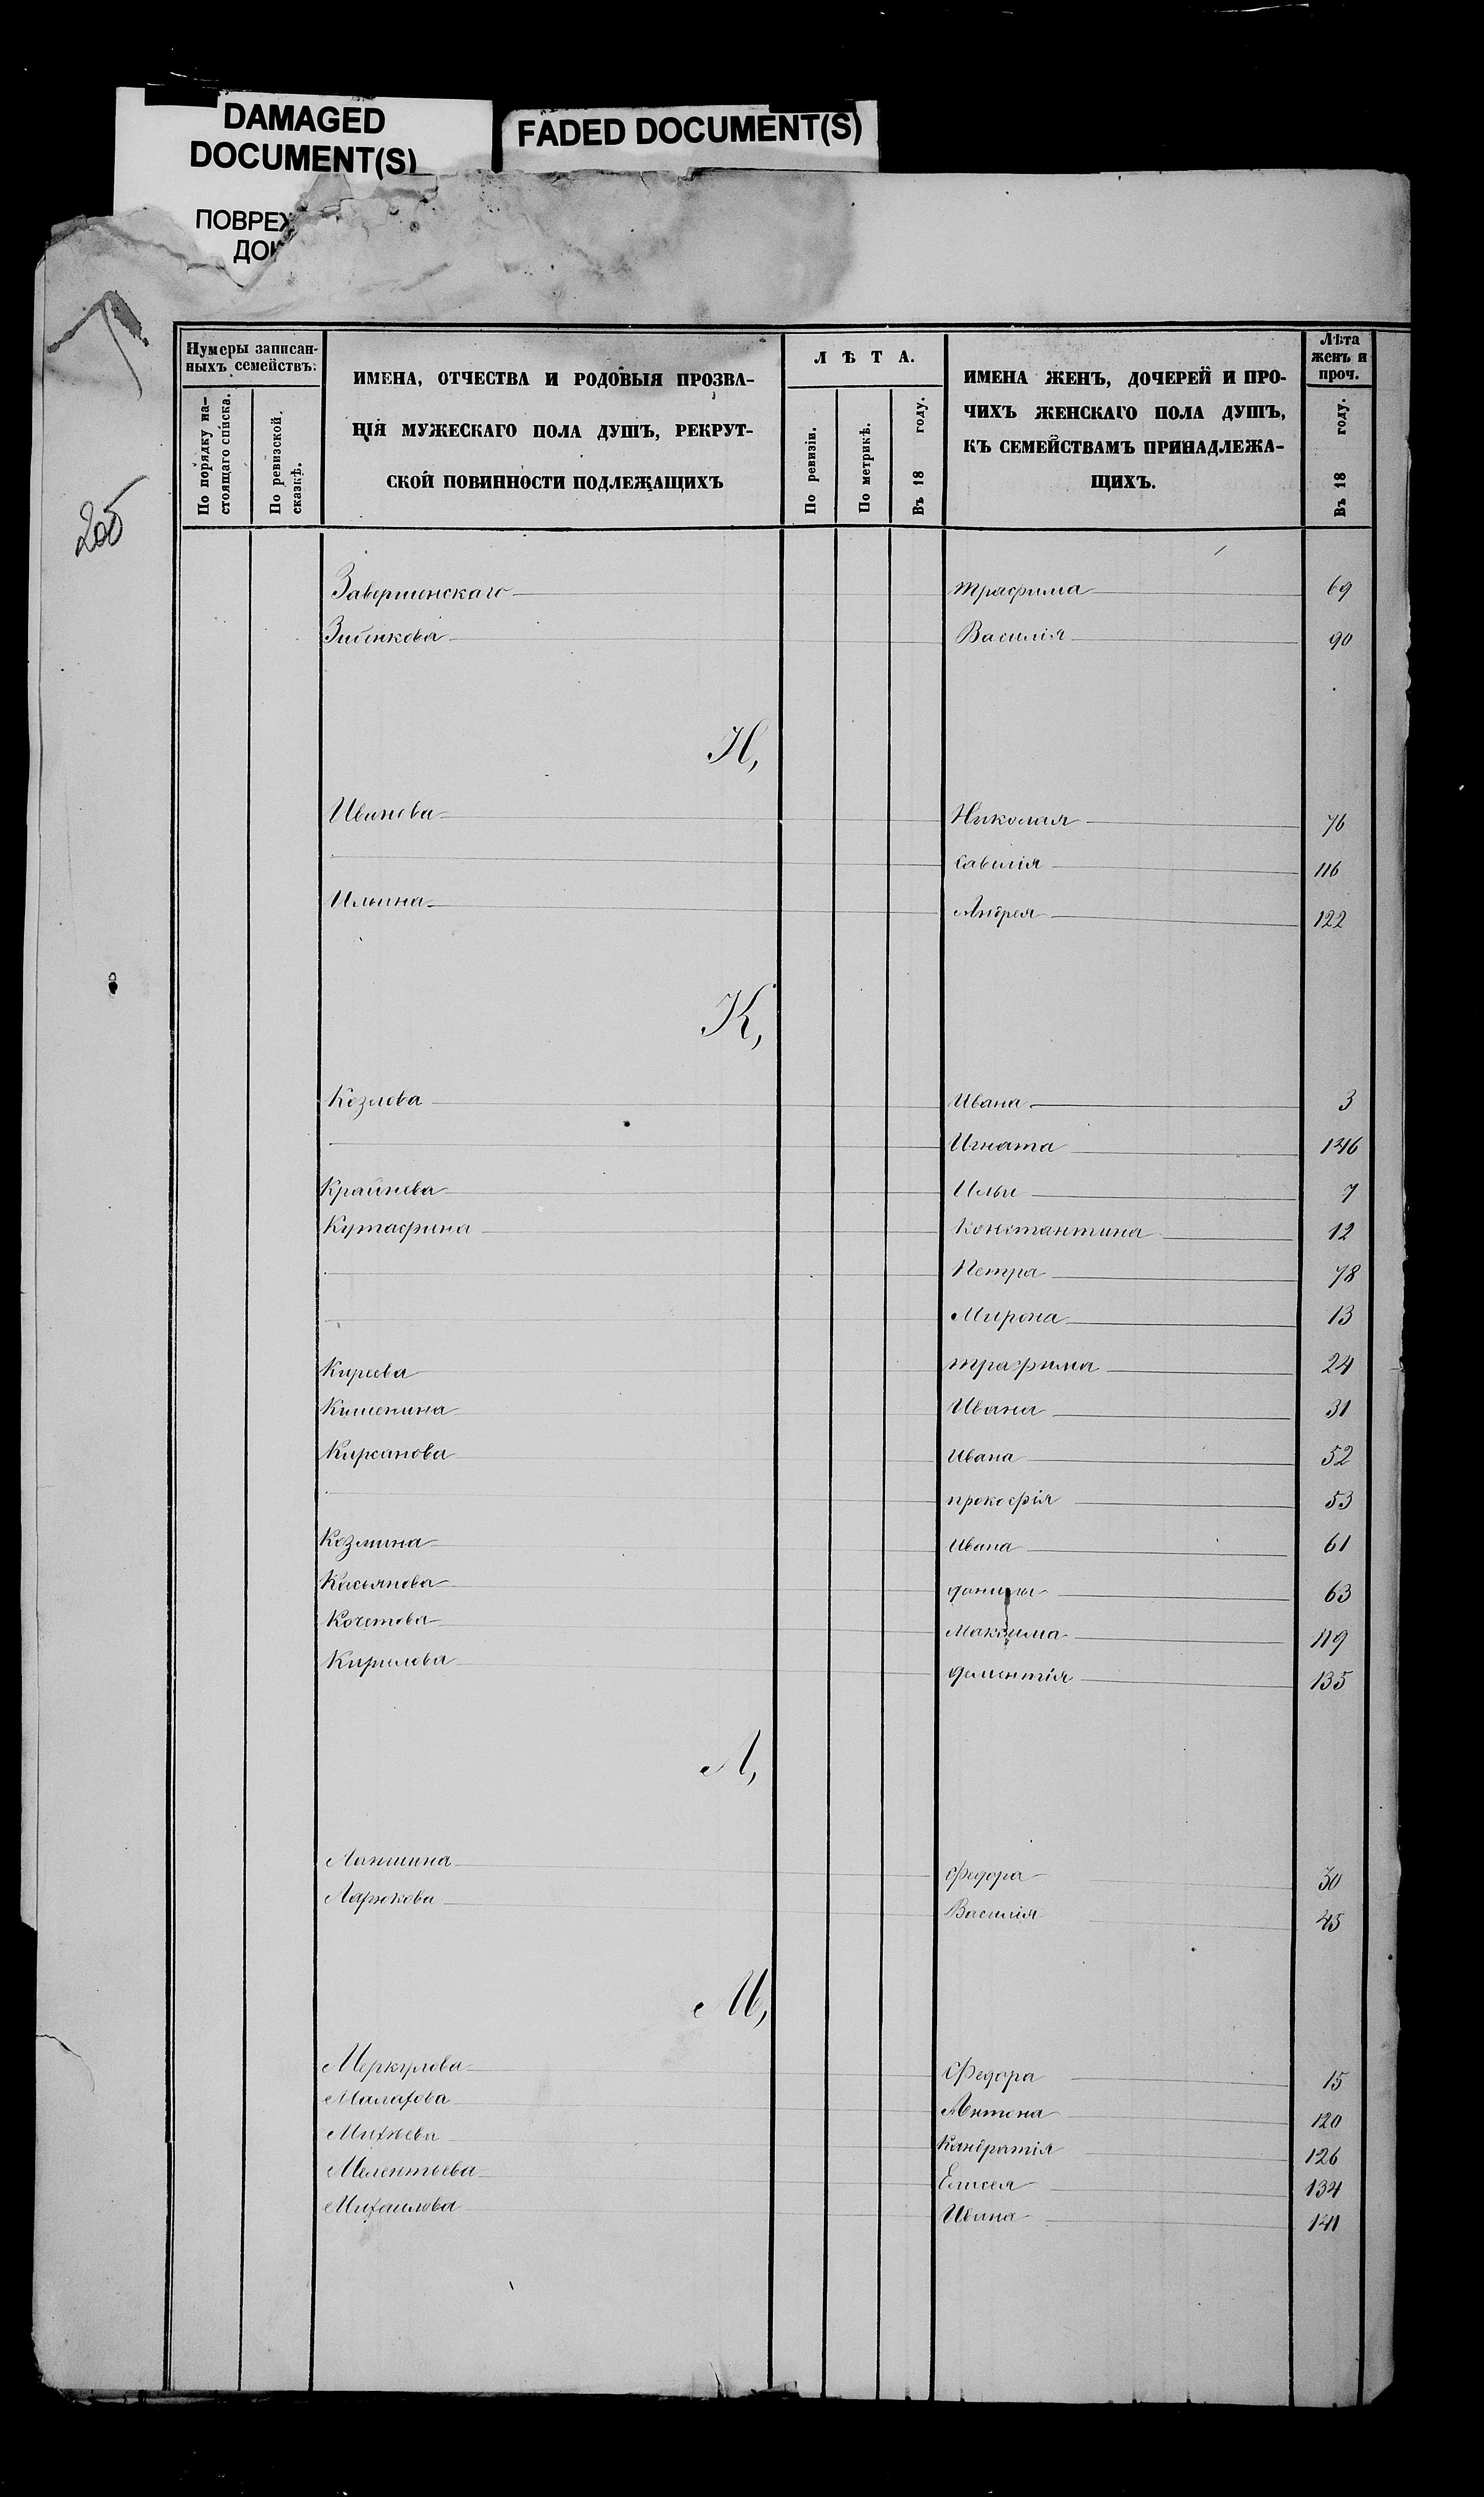 DAMAGED
DOCUMENT(S)
FADED DOCUMENT(S)
ПОВРЕЖ
ДОК
205
Нумеры записан-
ныхъ семействъ.
По порядку на-
стоящаго списка.
По ревизской
сказкѣ.
ИМЕНА, ОТЧЕСТВА И РОДОВЫЯ ПРОЗВА-
НІЯ МУЖЕСКАГО ПОЛА ДУШЪ, РЕКРУТ-
СКОЙ ПОВИННОСТИ ПОДЛЕЖАЩИХЪ
ЛѢТА.
По ревизіи.
По метрикѣ.
Въ 18 году.
ИМЕНА ЖЕНЪ, ДОЧЕРЕЙ И ПРО-
ЧИХЪ ЖЕНСКАГО ПОЛА ДУШЪ,
КЪ СЕМЕЙСТВАМЪ ПРИНАДЛЕЖА-
ЩИХЪ.
Лѣта
женъ и
проч.
Въ 18 году.
Завершенскаго Трафима 69
Зибенкова Василія 90
И,
Иванова Николая 76
Савелія 116
Ильина Андрея 122
К,
Козлова Ивана 3
Игната 146
Крайнева Ильи 7
Кутафина Константина 12
Петра 78
Мирона 13
Киреева Трафима 24
Кишенина Ивана 31
Кирсанова Ивана 52
прокофія 53
Козмина Ивана 61
Касьянова данилы 63
Кочетова Максима 119
Кирилова дементія 135
Л,
Лакшина Федора 30
Ларюкова Василія 45
М,
Меркулова Федора 15
Малахова Антона 120
Михѣева Кандратія 126
Мелентьева Елисея 134
Михаилова Ивана 141